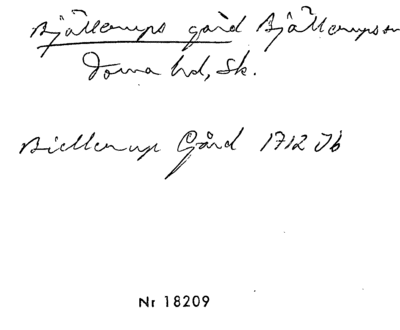 Bjällerups gård Bjällerups sn
Torna hd, Sk.
Biellerup Gård 1712 Jb
Nr 18209